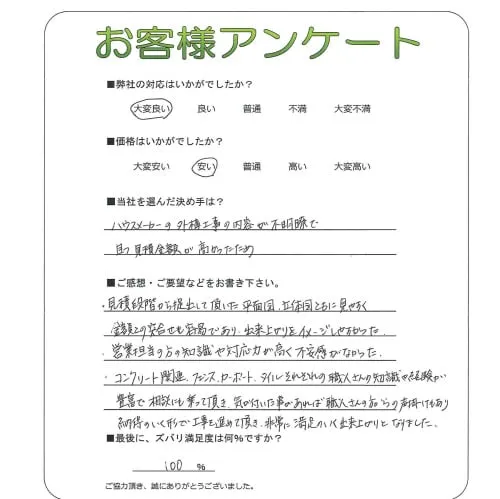 お客様アンケート
■弊社の対応はいかがでしたか？
大変良い 良い 普通 不満 大変不満
■価格はいかがでしたか？
大変安い 安い 普通 高い 大変高い
■当社を選んだ決め手は？
ハウスメーカーの外構工事の内容が不明瞭で
且つ見積金額が高かったため
■ご感想・ご要望などをお書き下さい。
・見積段階から提出して頂いた平面図、立体図ともに見やすく
金額との突合せも容易であり、出来上がりをイメージしやすかった。
・営業担当の方の知識や対応力が高く不安感がなかった。
・コンクリート関連、フェンス、カーポート、タイルそれぞれの職人さんの知識や経験が
豊富で相談にも乗って頂き、気が付いた事があれば職人さんの方からの声掛けもあり
納得のいく形で工事を進めて頂き、非常に満足のいく出来上がりとなりました。
■最後に、ズバリ満足度は何％ですか？
100 %
ご協力頂き、誠にありがとうございました。